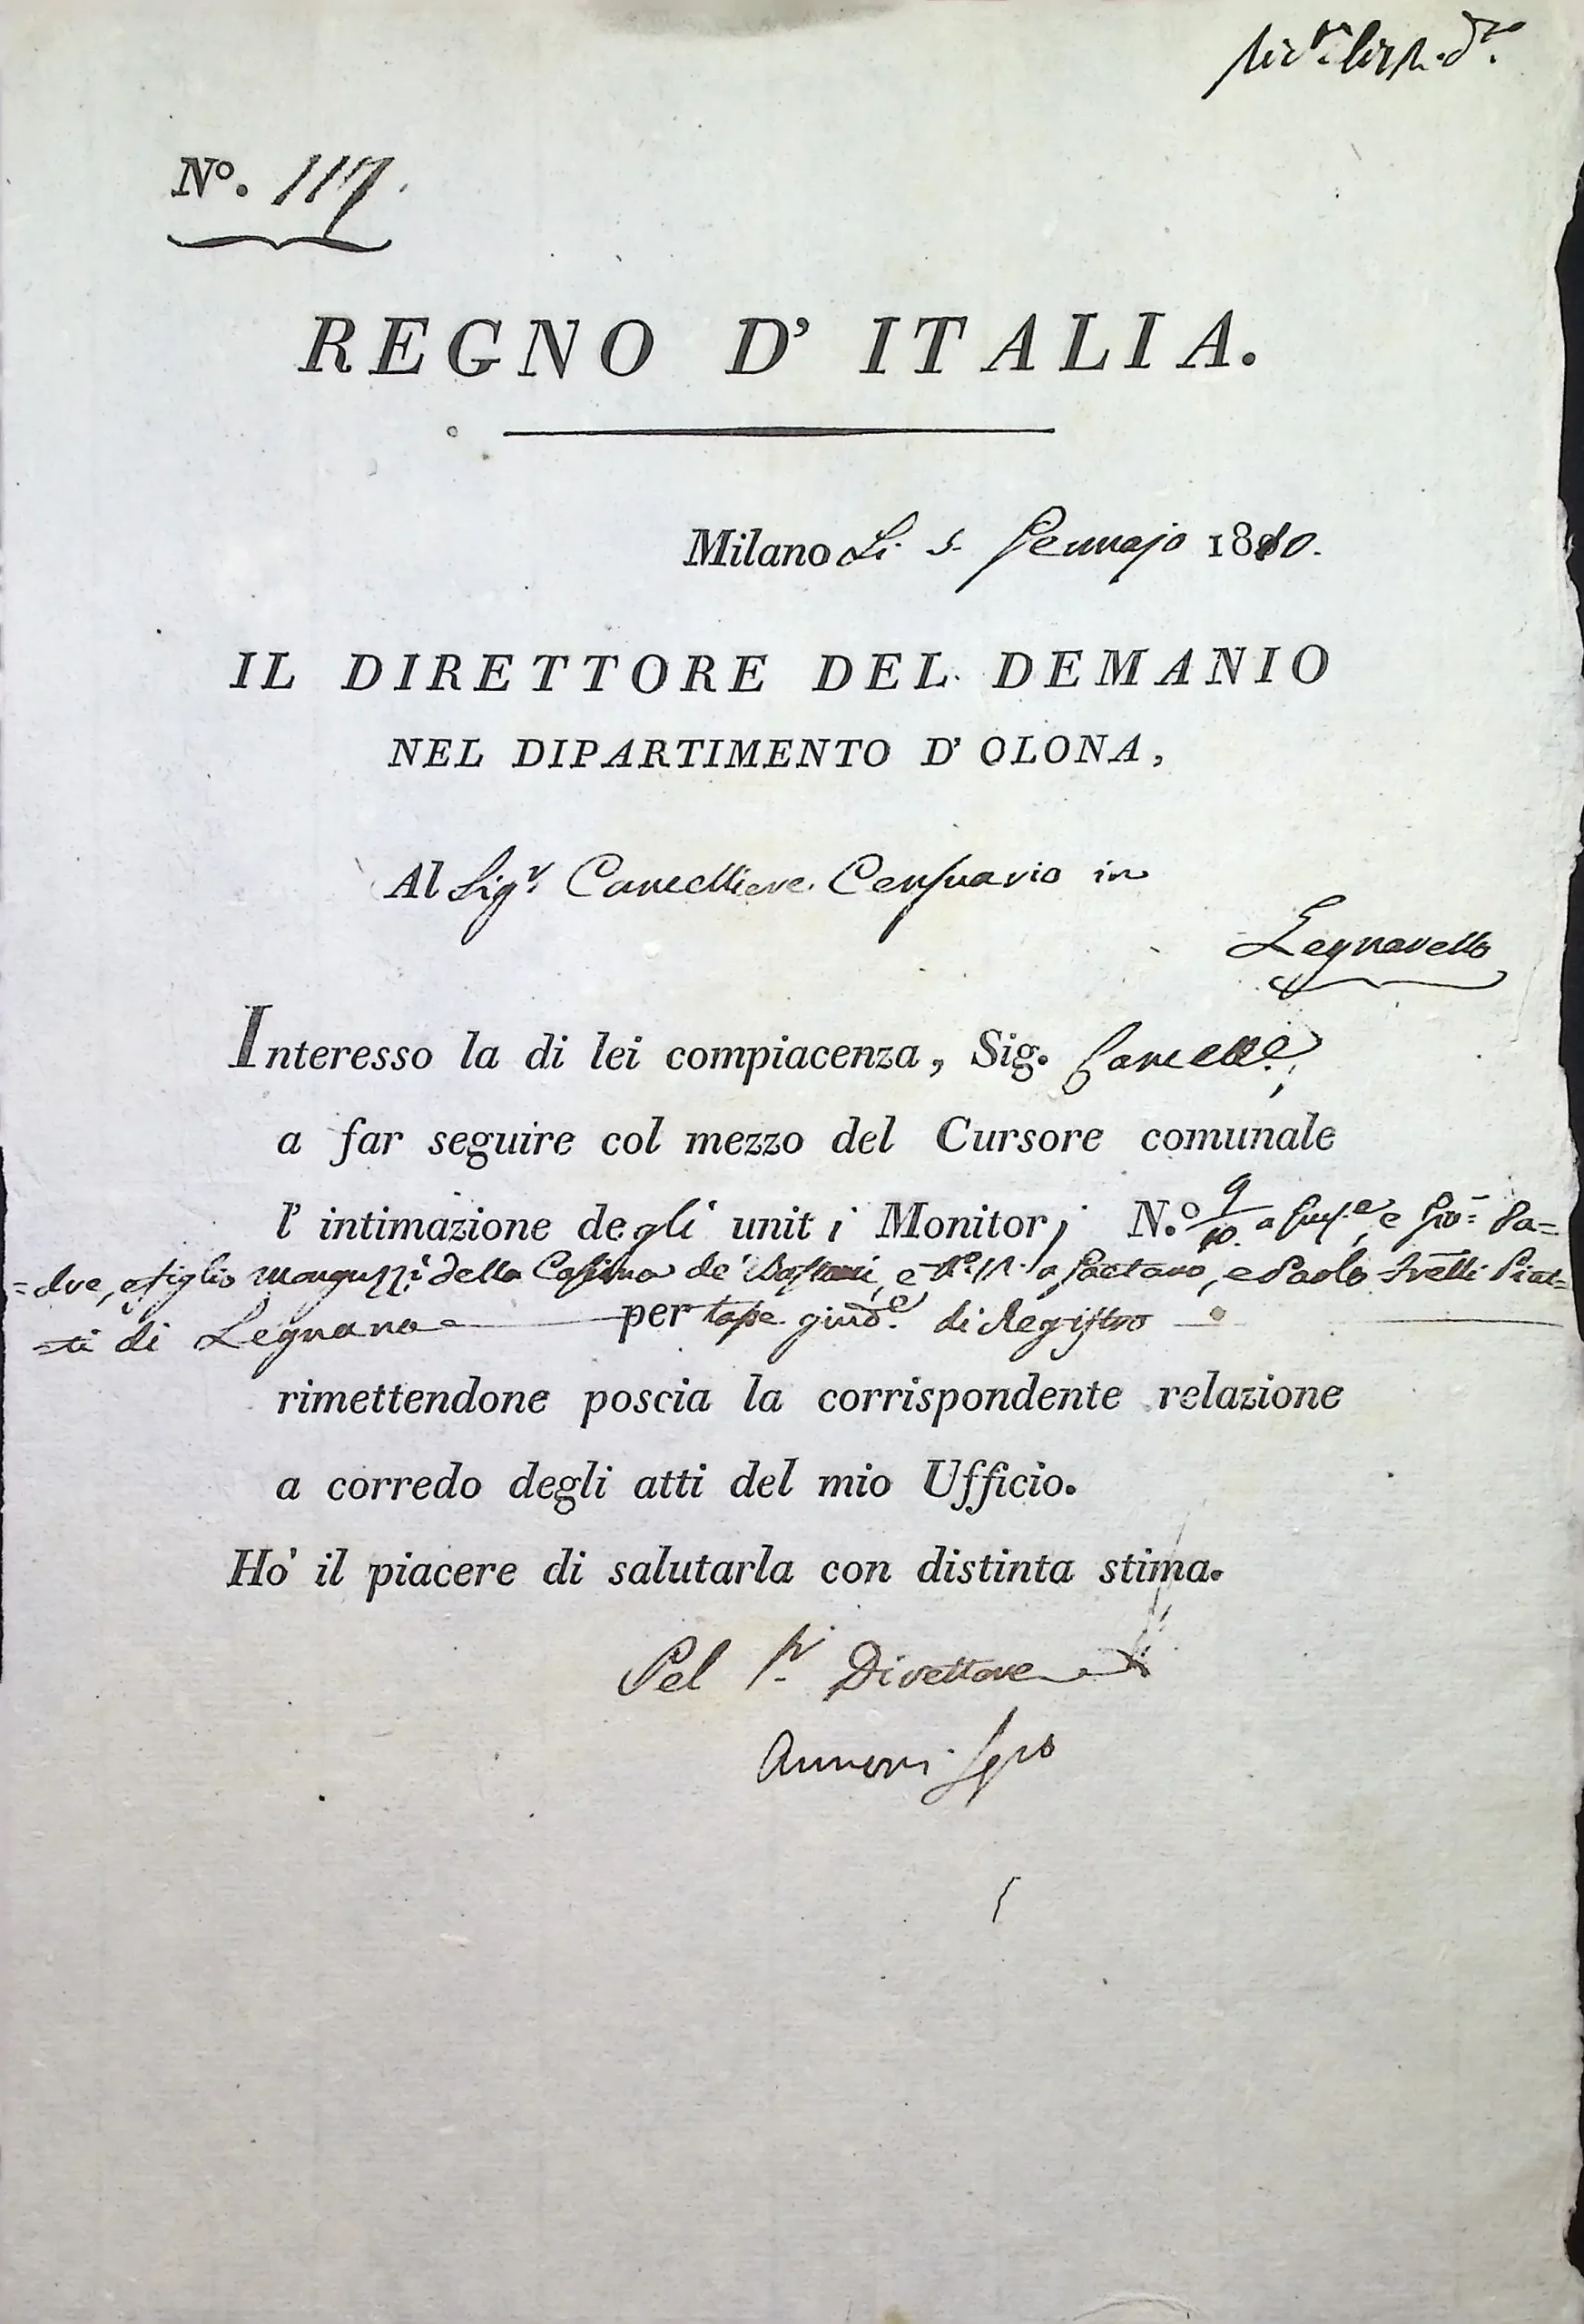 N.º 117.
REGNO D' ITALIA.
Milano Li 5. Gennajo 1810.
IL DIRETTORE DEL DEMANIO
NEL DIPARTIMENTO D' OLONA,
Al Sigr. Cancelliere Censuario in
Legnarello
Interesso la di lei compiacenza, Sig. Cancelle.,
a far seguire col mezzo del Cursore comunale
l' intimazione degli uniti Monitorj N.º 9/10. a Giuse. e Gio: Pa=
=dre, e figlio della Cassina de' e No. 11. a Gaetano, e Paolo Frelli Piat=
=ti di Legnano per tasse giude. di Registro
rimettendone poscia la corrispondente relazione
a corredo degli atti del mio Ufficio.
Ho il piacere di salutarla con distinta stima.
Pel Sr. Direttore
Annoni Segro